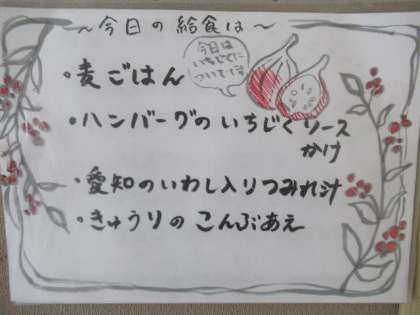 ～今日の給食は～
今日は
いちじくに
ついてです
・麦ごはん
・ハンバーグのいちじくソース
かけ
・愛知のいわし入りつみれ汁
・きゅうりのこんぶあえ